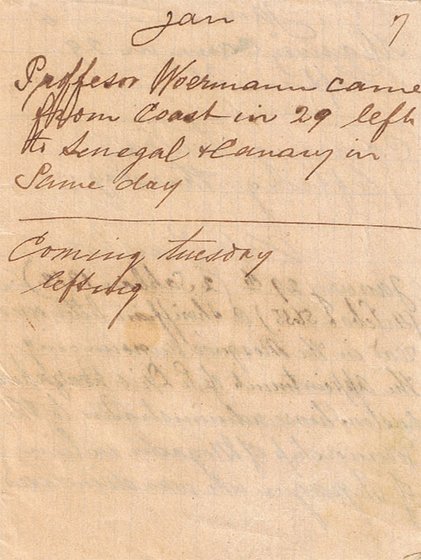 Jan 7
Proffesor Woermann came
from Coast in 29 left
to Senegal & Canary in
Same day
Coming tuesday
lefting